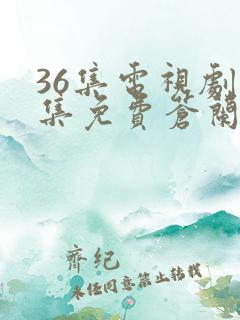 36集電視劇
集免費蒼蘭
齊纪
未任同意禁止转载